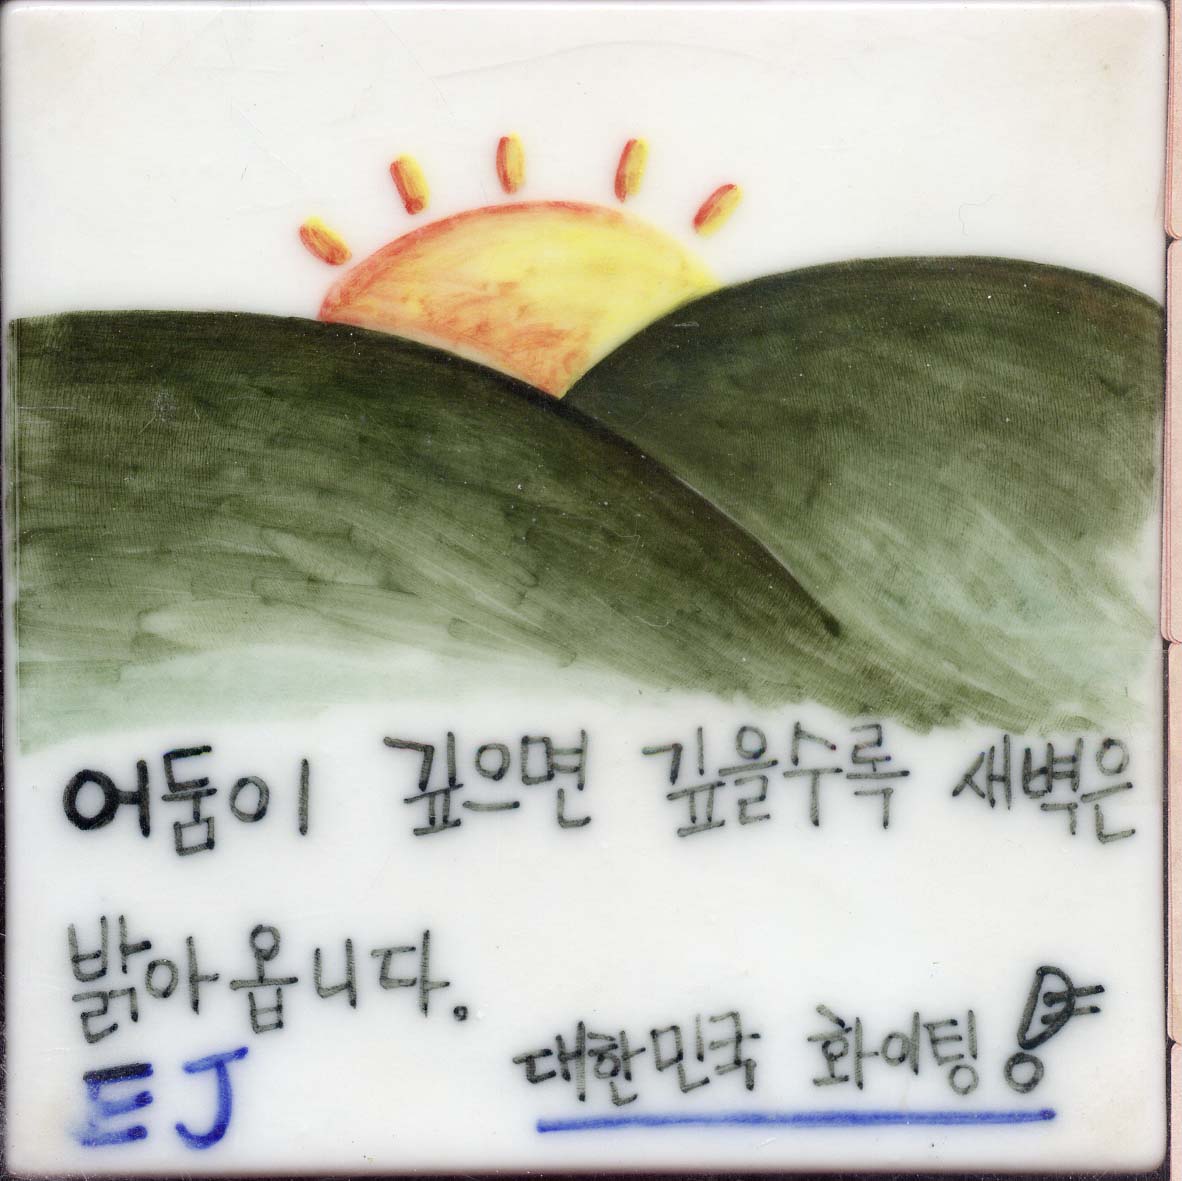 어둠이 깊으면 깊을수록 새벽은
밝아옵니다.
대한민국 화이팅!
EJ